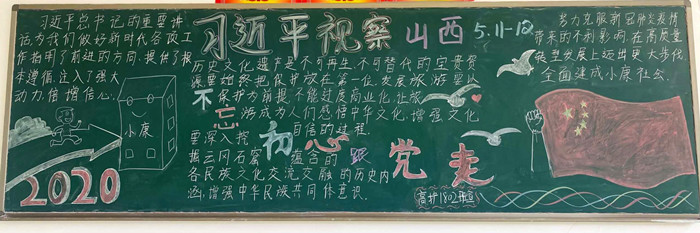 习近平总书记的重要讲
话为我们做好新时代各项工
作指明了前进的方向,提供了根
本遵循,注入了强大
动力,倍增信心.
小康
2020
习近平视察山西 5.11-12
历史文化遗产是不可再生、不可替代的宝贵资
源要始终把保护放在第一位.发展旅游要以
保护为前提,不能过度商业化,让旅
游成为人们感悟中华文化,增强文化
自信的过程.
要深入挖
掘云冈石窟 蕴含的
各民族文化交流交融的历史内
涵,增强中华民族共同体意识.
不忘初心 跟党走
努力克服新冠肺炎疫情
带来的不利影响,在高质量
转型发展上迈出更大步伐,
全面建成小康社会.
高护1802